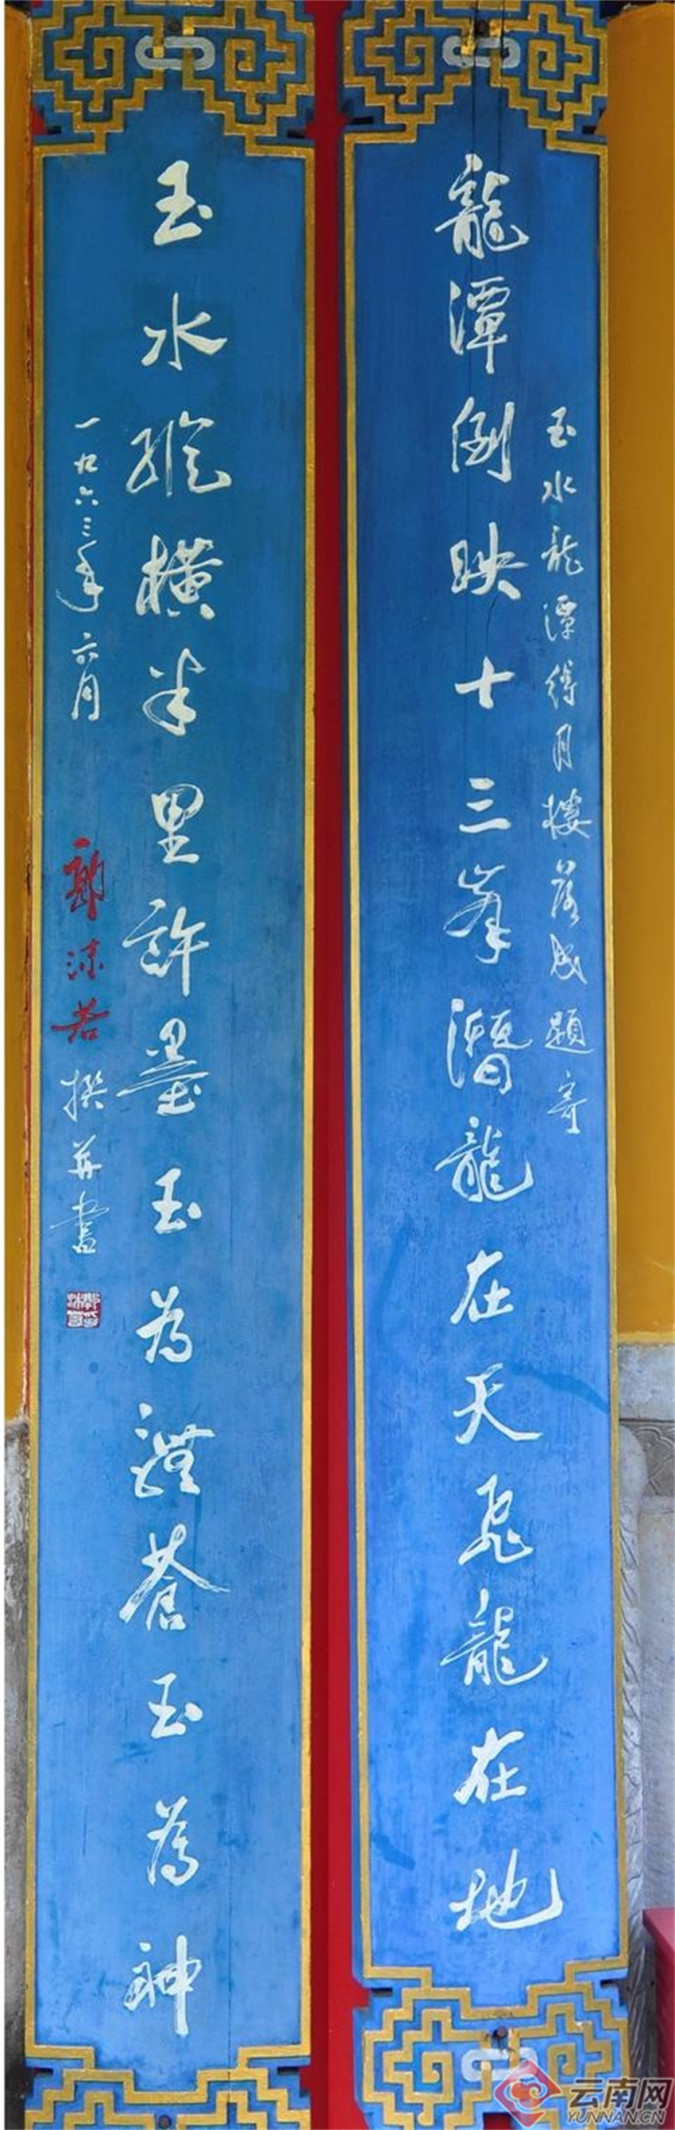 玉水龍潭得月樓落成題寄
龍潭倒映十三峯潛龍在天飛龍在地
玉水縱橫半里許墨玉為體蒼玉為神
一九六三年六月
郭沫若撰并書
云南网
YUNNAN.CN